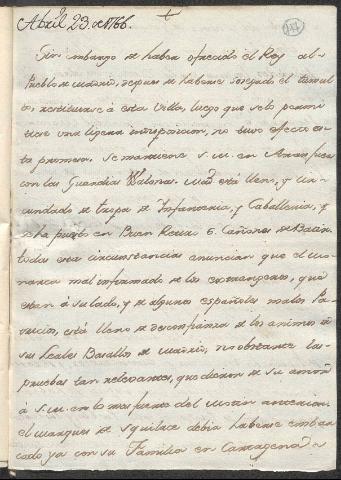 Abril 23. de 1766.
Sin embargo de haber ofrecido el Rey al
Pueblo de Madrid, depues de haberse sosegado el tumul
to, restituirse à esta Villa, luego que se lo permi
tiese una ligera indisposicion, no tuvo efecto es
ta promesa. Se mantiene S. M. en Aranjuez
con las Guardias Walonas. Mad. está lleno, y cir
cundado de tropa de Infanteria, y Caballeria, y
se ha puesto en Buen Retiro 6. Cañones de Batir.
todas estas circunstancias anuncian que el Mo
narca mal informado de los extrangeros, que
estan à su lado, y de algunos españoles malos Pa
tricios, está lleno de desconfianza de los animos de
sus Leales Basallos de Madrid, no obstante las
pruebas tan relevantes, que dieron de su amor
à S. M. en lo mas fuerte del motin anterior.
el Marques de Squilace debia haberse embar
cado ya con su Familia en Cartagena